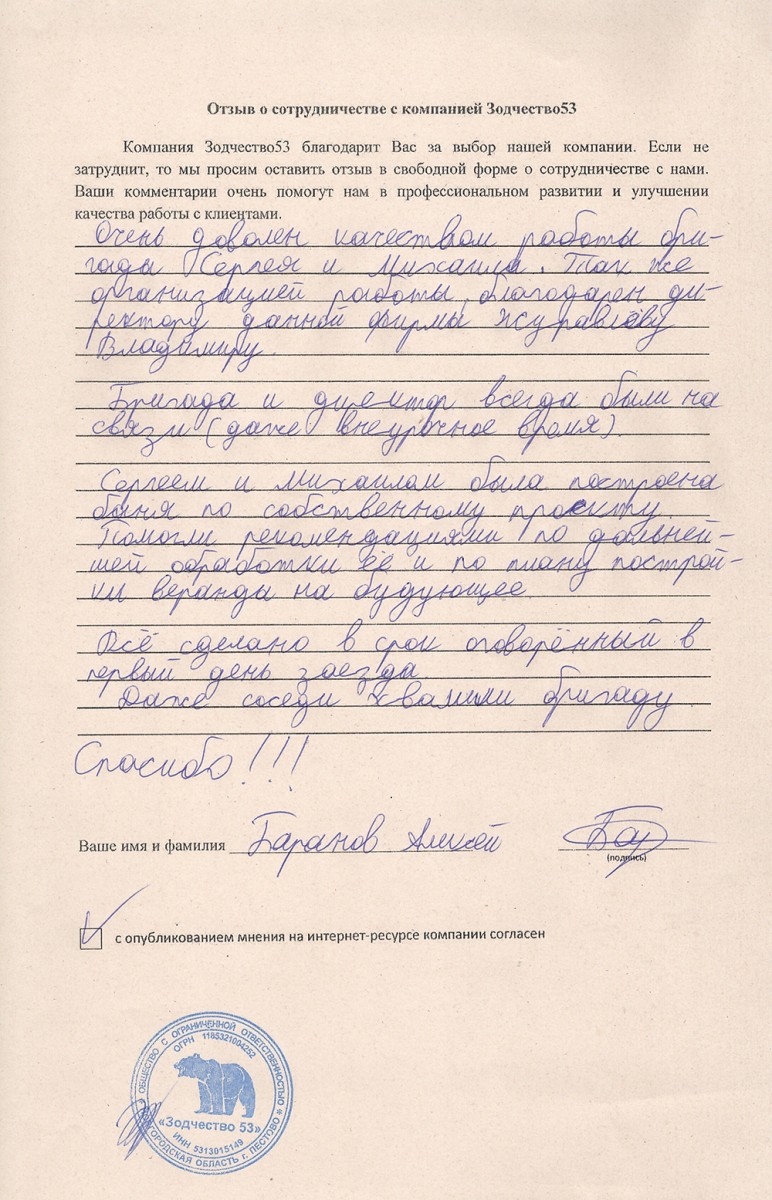 Отзыв о сотрудничестве с компанией Зодчество53
Компания Зодчество53 благодарит Вас за выбор нашей компании. Если не
затруднит, то мы просим оставить отзыв в свободной форме о сотрудничестве с нами.
Ваши комментарии очень помогут нам в профессиональном развитии и улучшении
качества работы с клиентами.
Очень доволен качеством работы бри-
гады Сергея и Михаила. Так же
организацией работы, благодарен ди-
ректору данной фирмы Журавлёву
Владимиру.
Бригада и директор всегда были на
связи (даже внеурочное время).
Сергеем и Михаилом была построена
баня по собственному проекту.
Помогли рекомендациями по дальней-
шей обработки её и по плану построй-
ки веранды на будующее.
Всё сделано в срок оговорённый в
первый день заезда
Даже соседи хвалили бригаду.
Спасибо!!!
Ваше имя и фамилия Баранов Алексей Бар
(подпись)
с опубликованием мнения на интернет-ресурсе компании согласен
ОБЩЕСТВО С ОГРАНИЧЕННОЙ ОТВЕТСТВЕННОСТЬЮ
ОГРН 1185321004252
«Зодчество 53»
ИНН 5313015149
НОВГОРОДСКАЯ ОБЛАСТЬ г. ПЕСТОВО